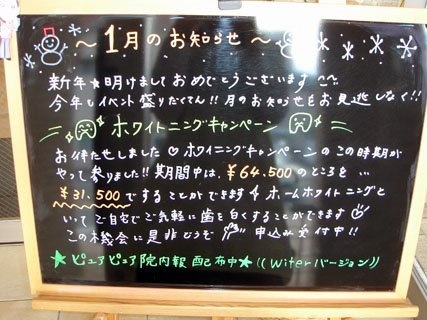 ～ 1月のお知らせ ～
新年★明けましておめでとうございます
今年もイベント盛りだくてん!! 月のお知らせもお見逃しなく!!
ホワイトニングキャンペーン
お待たせしました♡ホワイニングキャンペーンのこの時期が
やって来りました!! 期間中は、¥64.500のところを…
¥31.500ですることができます ホームホワイトニングと
いってご自宅でご気軽に歯を白くすることができます
この機会に是非どうぞ 申込み受付中!!
★ピュアピュア院内報 配布中★ ((Witerバージョン))